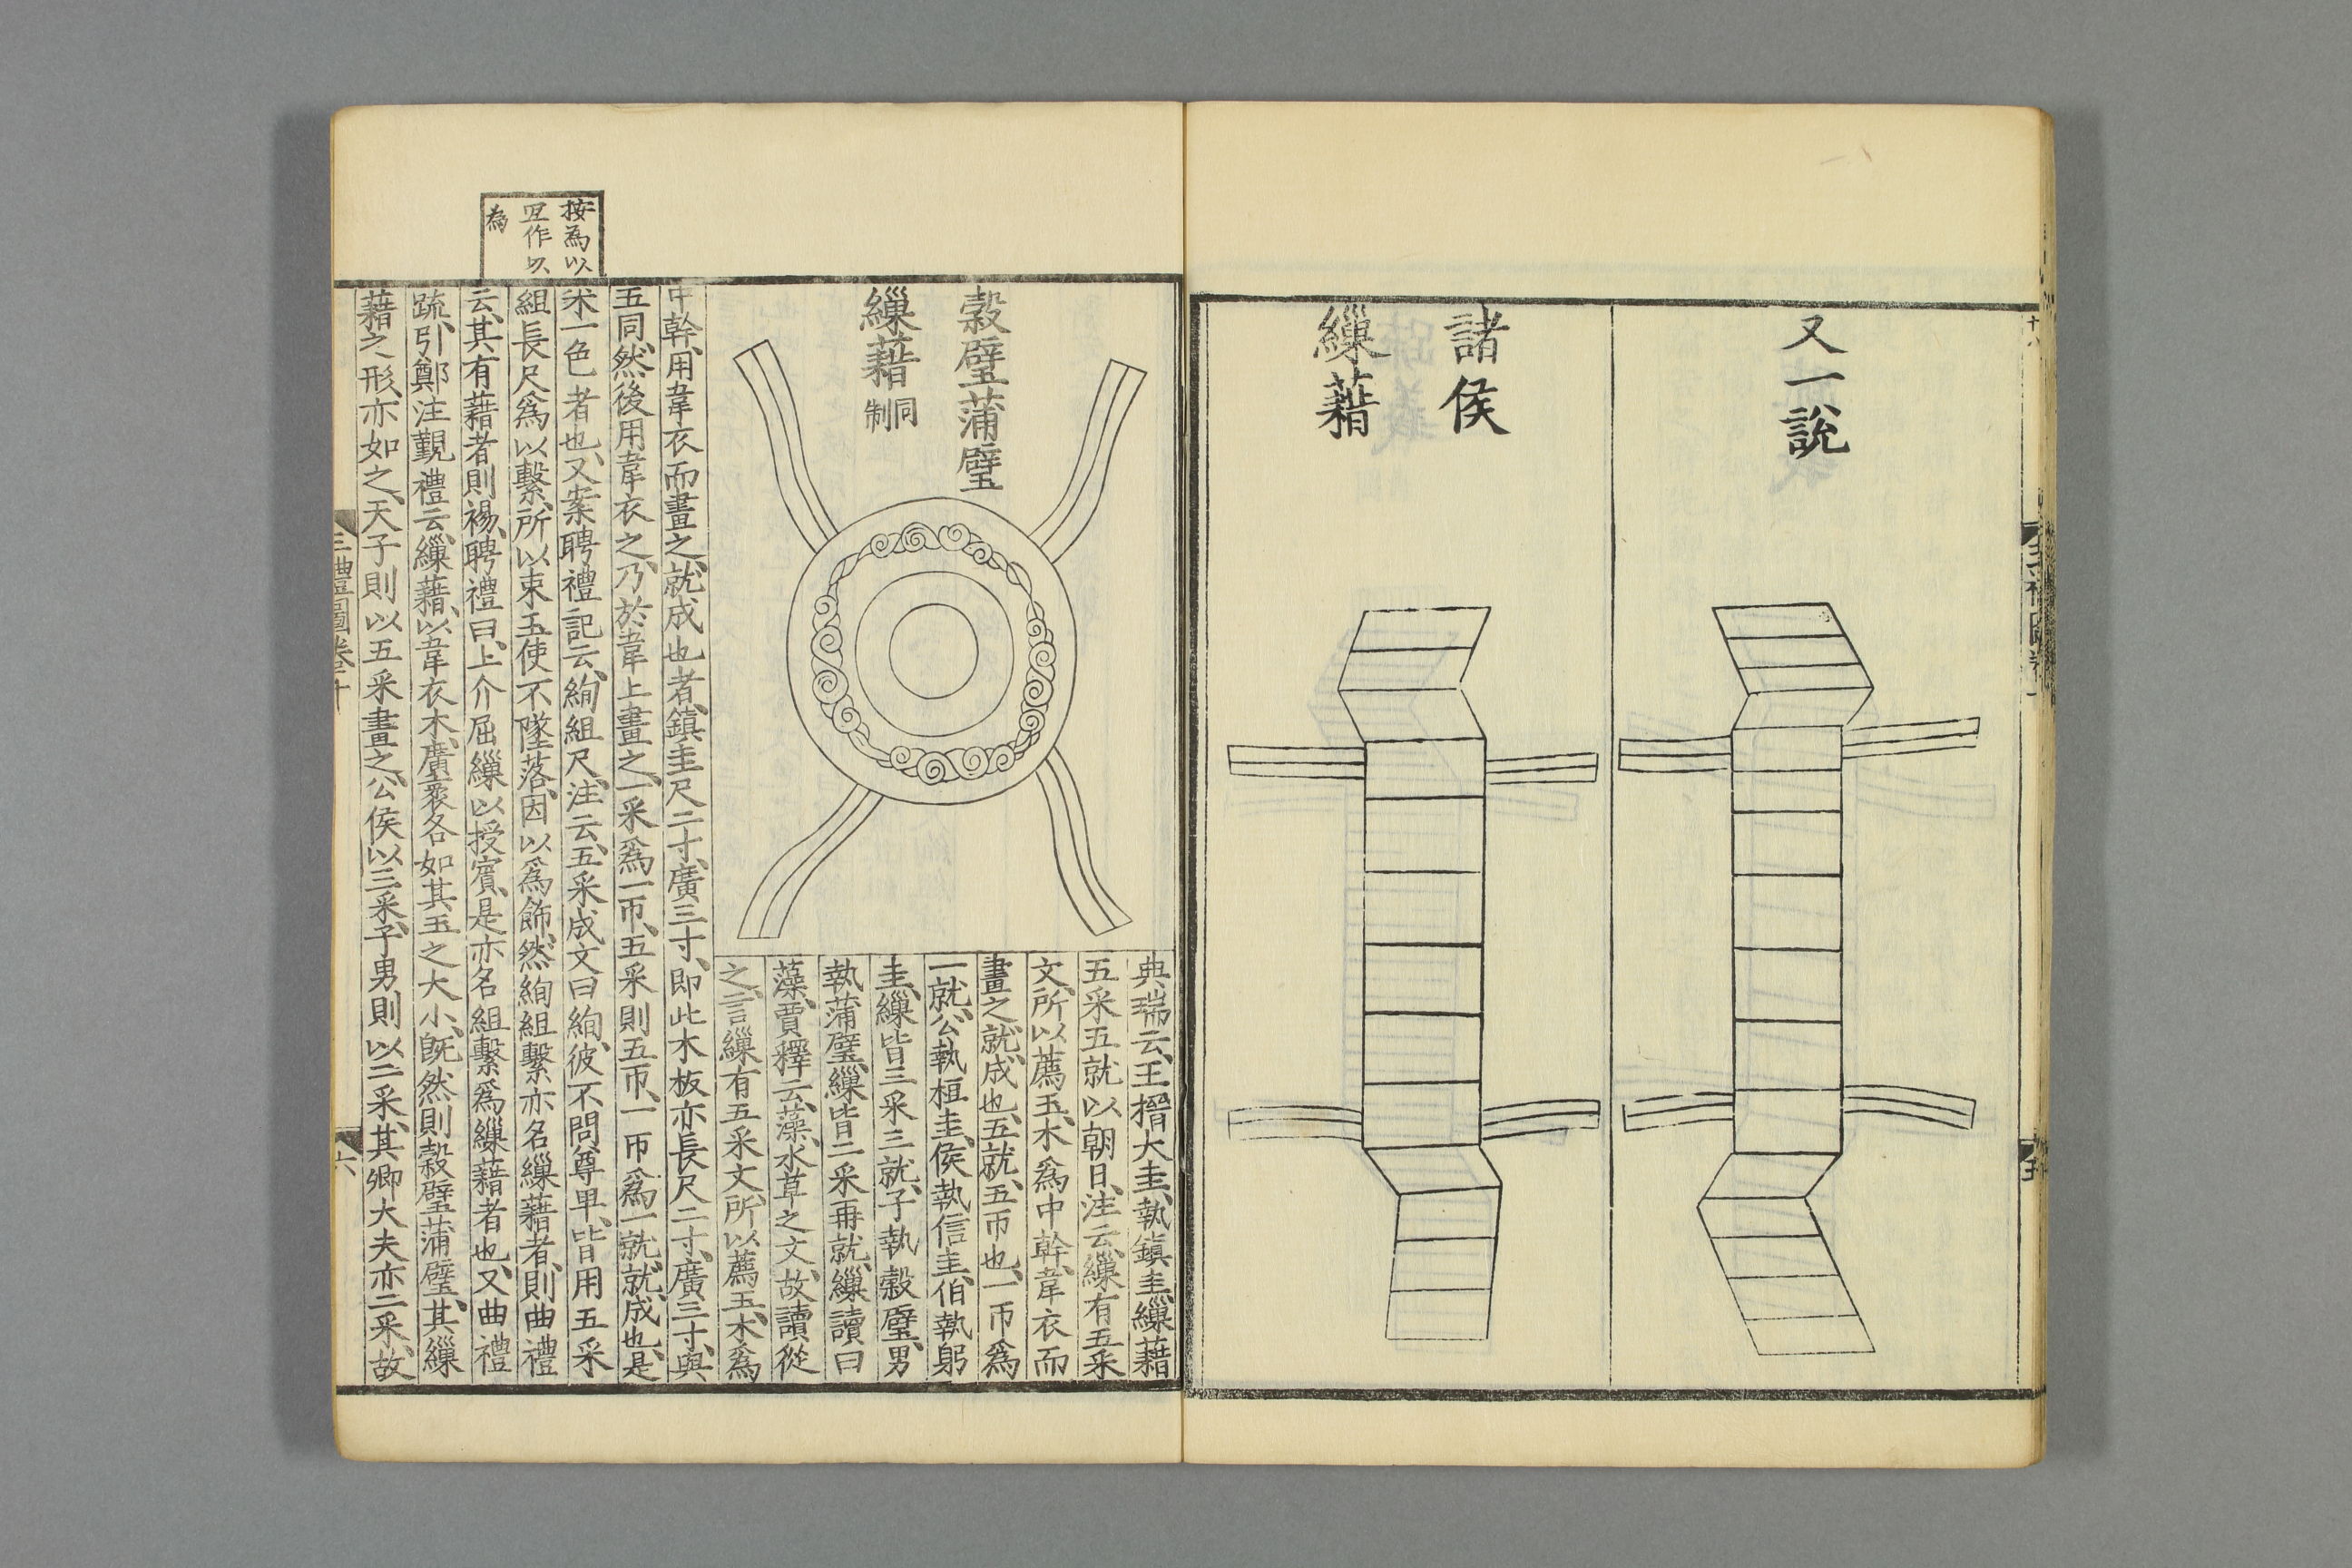 又一說
諸侯
繅藉
穀璧蒲璧
繅藉同制
典瑞云、王搢大圭、執鎮圭、繅藉
五采五就以朝日、注云、繅有五采
文、所以薦玉、木爲中幹、韋衣而
畫之、就、成也、五就、五帀也、一帀爲
一就、公執桓圭、侯執信圭、伯執躬
圭、繅皆三采三就、子執穀璧、男
執蒲璧、繅皆二采再就、繅讀曰
藻、賈釋云、藻、水草之文、故讀從
之、言繅有五采文、所以薦玉、木爲
中幹、用韋衣而畫之、就成也者、鎮圭尺二寸、廣三寸、即此木板亦長尺二寸、廣三寸、與
五同、然後用韋衣之、乃於韋上畫之、一采爲一帀、五采則五帀、一帀爲一就、就、成也、是
采一色者也、又案聘禮記云、絢組尺、注云、五采成文曰絢、彼不問尊卑、皆用五采
組長尺爲以繫、所以束玉使不墜落、因以爲飾、然絢組繫亦名繅藉者、則曲禮
云、其有藉者則裼、聘禮曰、上介屈繅以授賓、是亦名組繫爲繅藉者也、又曲禮
疏、引鄭注覲禮云、繅藉、以韋衣木、廣袤各如其玉之大小、旣然則穀璧蒲璧、其繅
藉之形、亦如之、天子則以五采畫之、公侯以三采、子男則以二采、其卿大夫亦二采、故
按爲以
宜作以
爲
三禮圖卷十
六